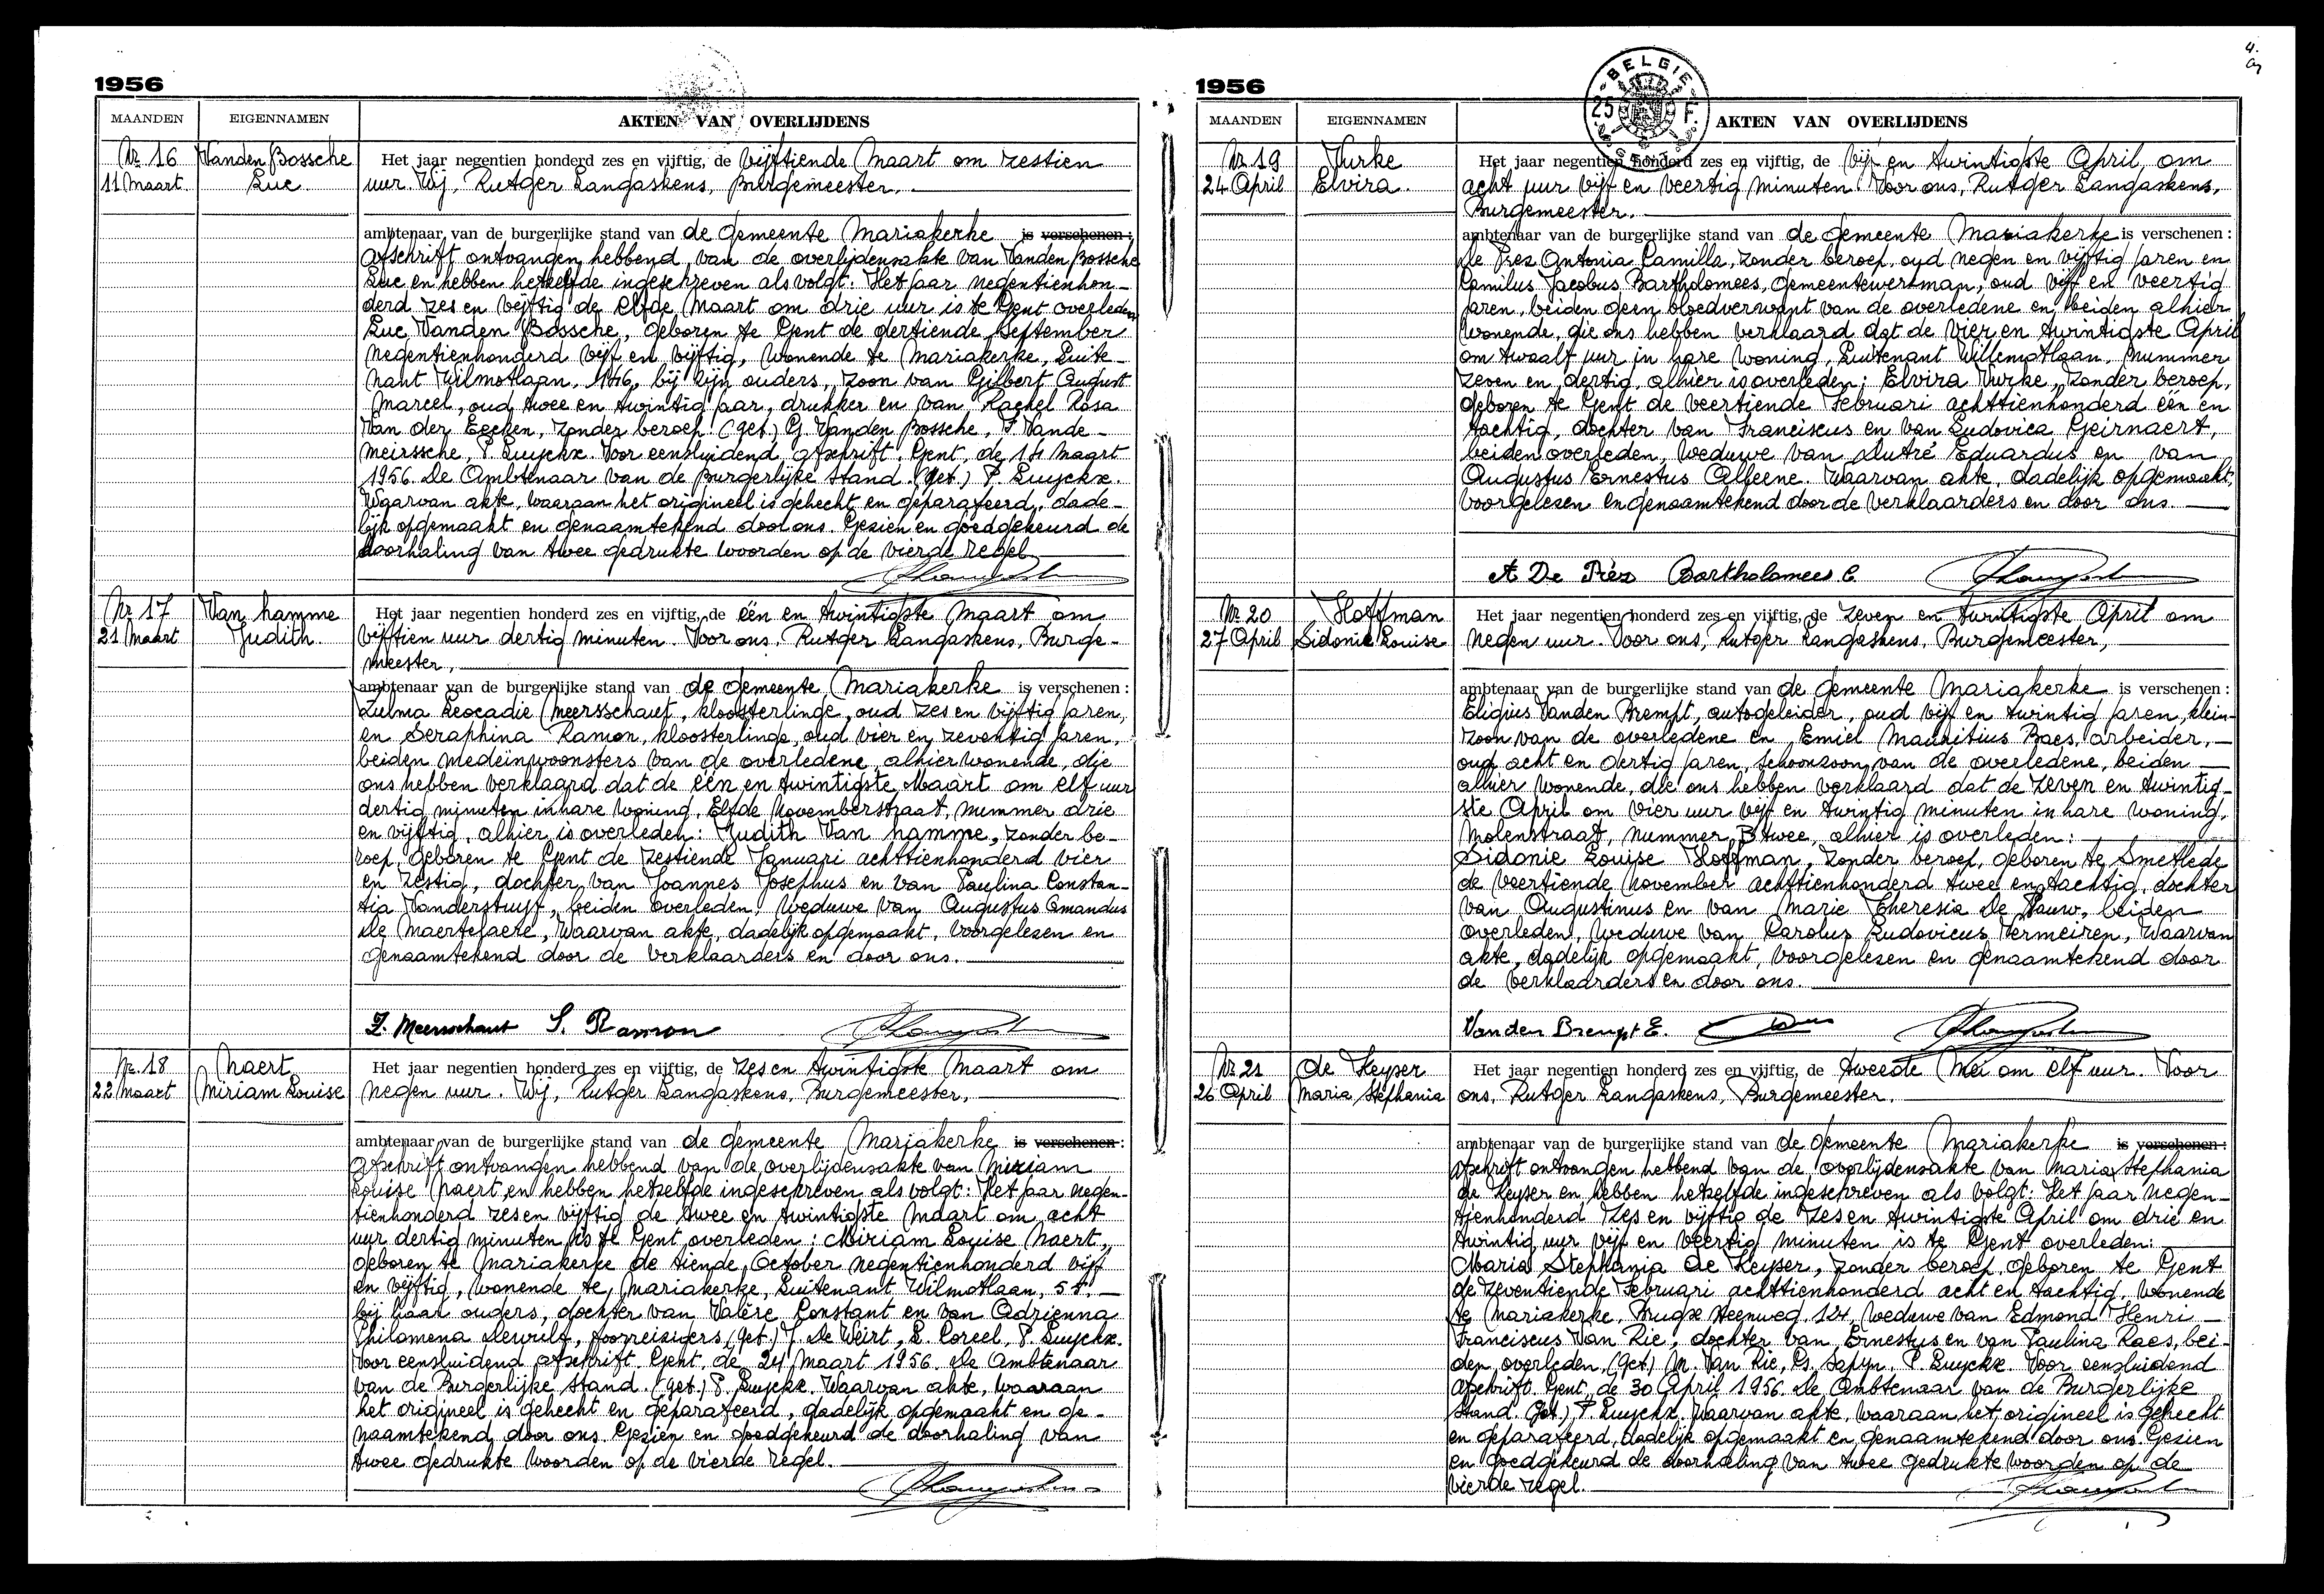 4.
1956
MAANDEN EIGENNAMEN AKTEN VAN OVERLIJDENS
Nr 16 Vanden Bossche Het jaar negentien honderd zes en vijftig, de vijftiende Maart om zestien
11 Maart Luc uur. Wij, Rutger Langaskens, Burgemeester,
ambtenaar van de burgerlijke stand van de Gemeente Mariakerke is verschenen:
afschrift ontvangen hebbend van de overlijdensakte van Vanden Bossche
Luc en hebben hetzelfde ingeschreven als volgt: Het jaar negentienhon-
derd zes en vijftig de elfde Maart om drie uur is te Gent overleden
Luc Vanden Bossche, geboren te Gent de dertiende September
negentienhonderd vijf en vijftig, wonende te Mariakerke, Luite-
nant Wilmotlaan, 146, bij zijn ouders, zoon van Gilbert August
Marcel, oud twee en twintig jaar, drukker en van Rachel Rosa
Van der Eecken, zonder beroep. (get) G. Vanden Bossche, F. Vande-
meirssche, P. Luyckx. Voor eensluidend afschrift. Gent, de 14 Maart
1956. De Ambtenaar van de Burgerlijke Stand. (get.) P. Luyckx.
Waarvan akte, waaraan het origineel is gehecht en geparafeerd, dade-
lijk opgemaakt en genaamtekend door ons. Gezien en goedgekeurd de
doorhaling van twee gedrukte woorden op de vierde regel.
Nr 17 Van hamme Het jaar negentien honderd zes en vijftig, de één en twintigste Maart om
21 Maart Judith vijftien uur dertig minuten. Voor ons, Rutger Langaskens, Burge-
meester,
ambtenaar van de burgerlijke stand van de Gemeente Mariakerke is verschenen:
Zulma Leocadie Meersschaut, kloosterlinge, oud zes en vijftig jaren,
en Seraphina Ramon, kloosterlinge, oud vier en zeventig jaren,
beiden medeinwoonsters van de overledene, alhier wonende, die
ons hebben verklaard dat de één en twintigste Maart om elf uur
dertig minuten in hare woning, Elfde Novemberstraat, nummer drie
en vijftig, alhier is overleden: Judith Van hamme, zonder be-
roep, geboren te Gent de zestiende Januari achttienhonderd vier
en zestig, dochter van Joannes Josephus en van Paulina Constan-
tia Vanderstuyf, beiden overleden, weduwe van Augustus Amandus
De Maertelaere, Waarvan akte, dadelijk opgemaakt, voorgelezen en
genaamtekend door de verklaarders en door ons.
Z. Meersschaut S. Ramon
Nr. 18 Naert Het jaar negentien honderd zes en vijftig, de zes en twintigste Maart om
22 Maart Miriam Louise negen uur. Wij, Rutger Langaskens, Burgemeester,
ambtenaar van de burgerlijke stand van de Gemeente Mariakerke is verschenen:
afschrift ontvangen hebbend van de overlijdensakte van Miriam
Louise Naert en hebben hetzelfde ingeschreven als volgt: Het jaar negen-
tienhonderd zes en vijftig de twee en twintigste Maart om acht
uur dertig minuten is te Gent overleden: Miriam Louise Naert,
geboren te Mariakerke de tiende October negentienhonderd vijf
en vijftig, wonende te Mariakerke, Luitenant Wilmotlaan, 55,
bij haar ouders, dochter van Valère Constant en van Adrienna
Philomena Dewulf, foorreizigers (get.) J. De Weirt, L. Coreel, P. Luyckx.
Voor eensluidend afschrift. Gent, de 24 Maart 1956. De Ambtenaar
van de Burgerlijke Stand. (get.) P. Luyckx. Waarvan akte, waaraan
het origineel is gehecht en geparafeerd, dadelijk opgemaakt en ge-
naamtekend door ons. Gezien en goedgekeurd de doorhaling van
twee gedrukte woorden op de vierde regel.
1956
BELGIE 25 F.
MAANDEN EIGENNAMEN AKTEN VAN OVERLIJDENS
Nr 19 Vurke Het jaar negentien honderd zes en vijftig, de vijf en twintigste April, om
24 April Elvira acht uur vijf en veertig minuten. Voor ons, Rutger Langaskens,
Burgemeester.
ambtenaar van de burgerlijke stand van de Gemeente Mariakerke is verschenen:
De Prez Antonia Camilla, zonder beroep, oud negen en vijftig jaren en
Camilus Jacobus Bartholomees, Gemeentewerkman, oud vijf en veertig
jaren, beiden geen bloedverwant van de overledene en beiden alhier
wonende, die ons hebben verklaard dat de vier en twintigste April
om twaalf uur in hare woning, Luitenant Willemotlaan, nummer
zeven en dertig, alhier is overleden: Elvira Vurke, zonder beroep,
geboren te Gent de veertiende Februari achttienhonderd één en
tachtig, dochter van Franciscus en van Ludovica Geirnaert,
beiden overleden, weduwe van Dutré Eduardus en van
Augustus Ernestus Alleene. Waarvan akte, dadelijk opgemaakt,
voorgelezen en genaamtekend door de verklaarders en door ons
A De Prez Bartholomees C.
Nr 20 Hoffman Het jaar negentien honderd zes en vijftig, de zeven en twintigste April om
27 April Sidonie Louise negen uur. Voor ons, Rutger Langaskens, Burgemeester,
ambtenaar van de burgerlijke stand van de Gemeente Mariakerke is verschenen:
Eligius Vanden Brempt, autogeleider, oud vijf en twintig jaren, klein-
zoon van de overledene en Emiel Mauritius Baes, arbeider,
oud acht en dertig jaren, schoonzoon van de overledene, beiden
alhier wonende, die ons hebben verklaard dat de zeven en twintig-
ste April om vier uur vijf en twintig minuten in hare woning,
Molenstraat, nummer B twee, alhier is overleden:
Sidonie Louise Hoffman, zonder beroep, geboren te Smetlede
de veertiende November achttienhonderd twee en tachtig, dochter
van Augustinus en van Marie Theresia De Pauw, beiden
overleden, weduwe van Carolus Ludovicus Vermeiren, Waarvan
akte, dadelijk opgemaakt, voorgelezen en genaamtekend door
de verklaarders en door ons.
Vanden Brempt E.
Nr. 21 de Keyser Het jaar negentien honderd zes en vijftig, de tweede Mei om elf uur. Voor
26 April Maria Stephania ons, Rutger Langaskens, Burgemeester.
ambtenaar van de burgerlijke stand van de Gemeente Mariakerke is verschenen:
afschrift ontvangen hebbend van de overlijdensakte van Maria Stephania
de Keyser en hebben hetzelfde ingeschreven als volgt: Het jaar negen-
tienhonderd zes en vijftig de zes en twintigste April om drie en
twintig uur vijf en veertig minuten is te Gent overleden:
Maria Stephania De Keyser, zonder beroep, geboren te Gent
de zeventiende Februari achttienhonderd acht en tachtig, wonende
te Mariakerke, Brugse steenweg 124, weduwe van Edmond Henri
Franciscus Van Rie, dochter van Ernestus en van Paulina Raes, bei-
den overleden, (get) M. Van Rie, Sapyn, P. Luyckx. Voor eensluidend
afschrift. Gent, de 30 April 1956. De Ambtenaar van de Burgerlijke
Stand. (get.) P. Luyckx. Waarvan akte, waaraan het origineel is gehecht
en geparafeerd, dadelijk opgemaakt en genaamtekend door ons. Gezien
en goedgekeurd de doorhaling van twee gedrukte woorden op de
vierde regel.